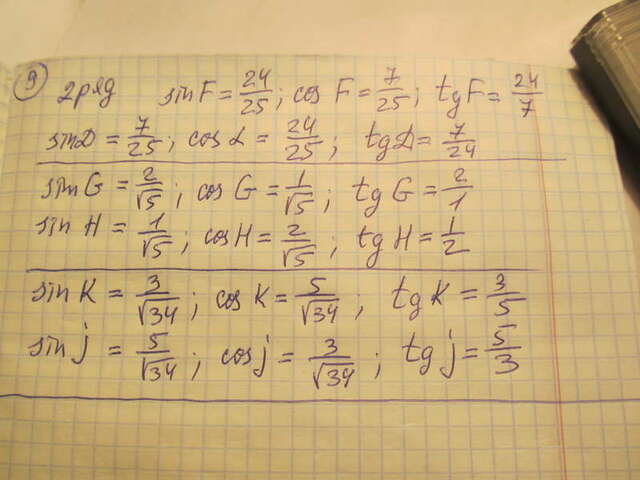 9 2 ряд sin F = 24/25; cos F = 7/25; tg F = 24/7
sin D = 7/25; cos L = 24/25; tg D = 7/24
sin G = 2/√5; cos G = 1/√5; tg G = 2/1
sin H = 1/√5; cos H = 2/√5; tg H = 1/2
sin K = 3/√34; cos K = 5/√34; tg K = 3/5
sin j = 5/√34; cos j = 3/√34; tg j = 5/3